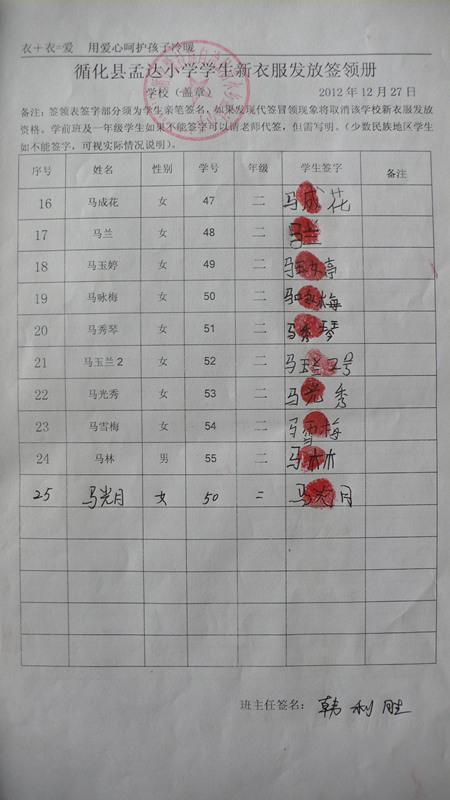 衣+衣=爱 用爱心呵护孩子冷暖
循化县孟达小学学生新衣服发放签领册
学校(盖章) 2012年12月27日
备注:签领表签字部分须为学生亲笔签名,如果发现代签冒领现象将取消该学校新衣服发放
资格。学前班及一年级学生如果不能签字可以请老师代签,但需写明。(少数民族地区学生
如不能签字,可视实际情况说明)。
序号 姓名 性别 学号 年级 学生签字 备注
16 马成花 女 47 二 马成花
17 马兰 女 48 二 马兰
18 马玉婷 女 49 二 马玉女亭
19 马咏梅 女 50 二 马咏梅
20 马秀琴 女 51 二 马秀琴
21 马玉兰2 女 52 二 马玉兰2号
22 马光秀 女 53 二 马光秀
23 马雪梅 女 54 二 马雪梅
24 马林 男 55 二 马林
25 马光月 女 50 二 马光月
班主任签名: 韩利胜